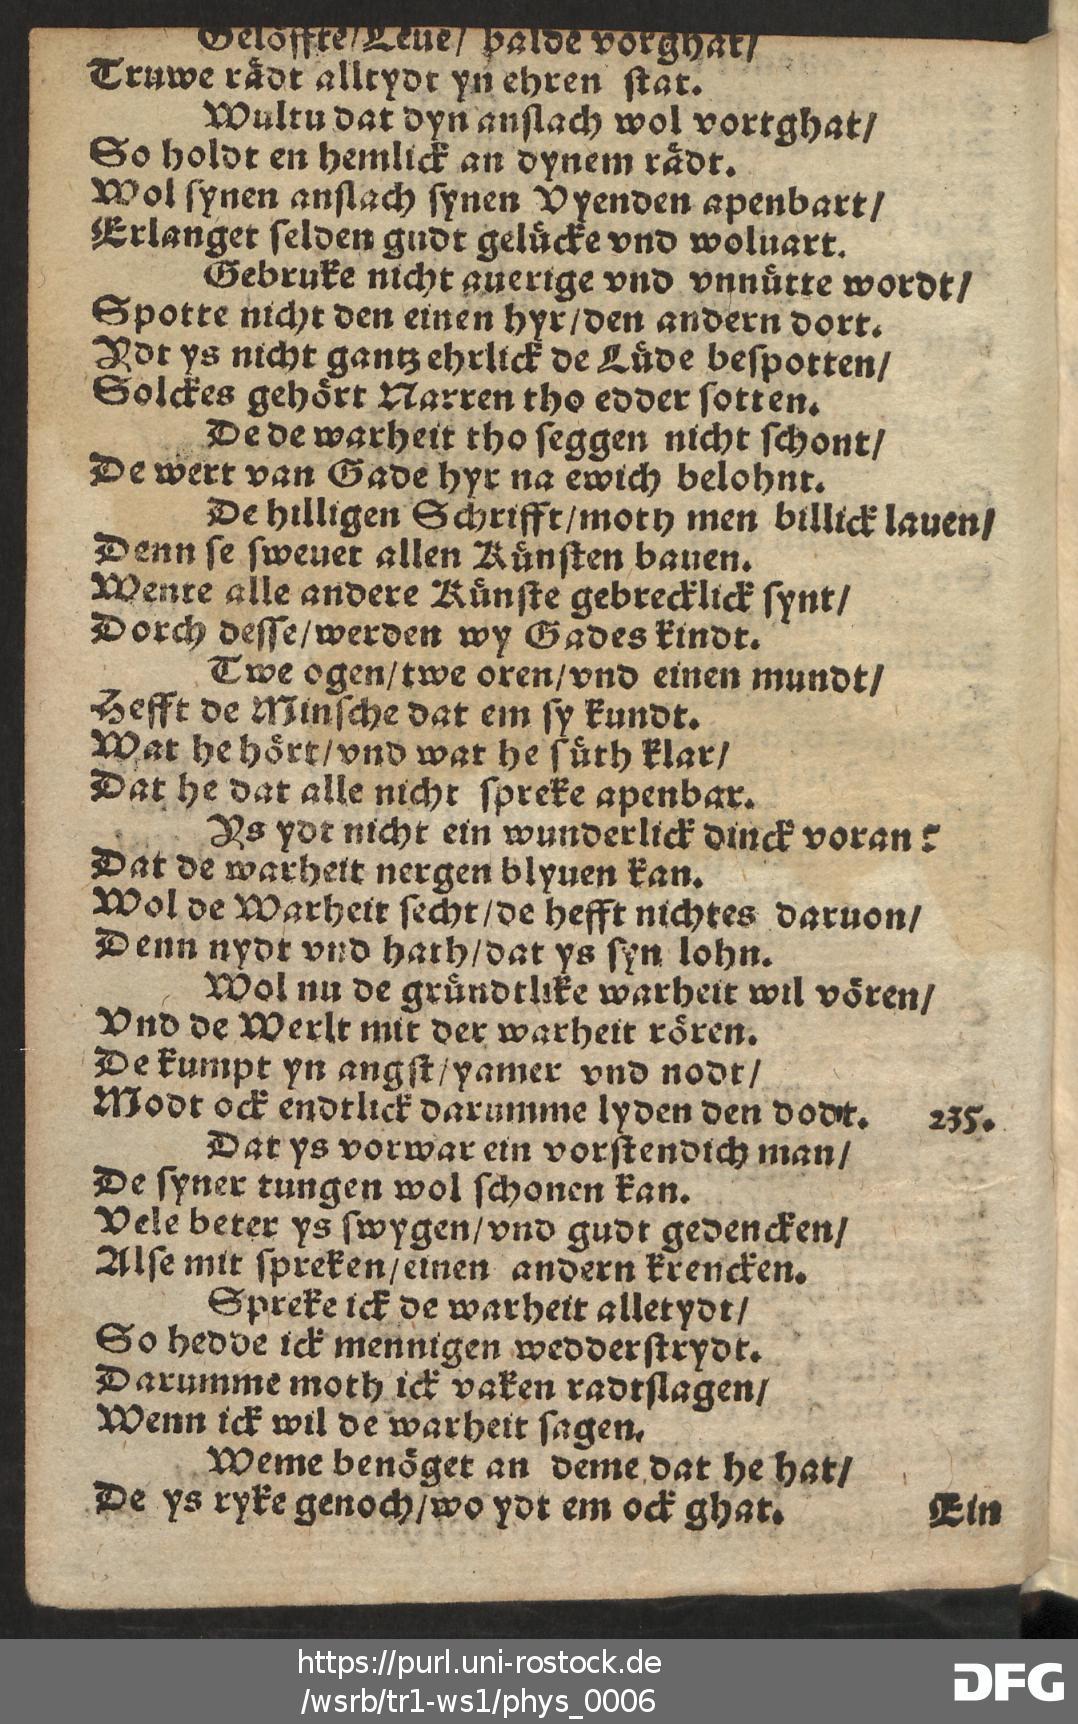 Gelöffte/Leue/ balde vorghat/
Truwe rådt alltydt yn ehren stat.
Wultu dat dyn anslach wol vortghat/
So holdt en hemlick an dynem rådt.
Wol synen anslach synen Vyenden apenbart/
Erlanget selden gudt gelücke vnd woluart.
Gebruke nicht auerige vnd vnnütte wordt/
Spotte nicht den einen hyr/den andern dort.
Ydt ys nicht gantz ehrlick de Lüde bespotten/
Solckes gehört Narren tho edder sotten.
De de warheit tho seggen nicht schont/
De wert van Gade hyr na ewich belohnt.
De hilligen Schrifft/moth men billick lauen/
Denn se sweuet allen Künsten bauen.
Wente alle andere Künste gebrecklick synt/
Dorch desse/werden wy Gades kindt.
Twe ogen/twe oren/vnd einen mundt/
Hefft de Minsche dat em sy kundt.
Wat he hört/vnd wat he süth klar/
Dat he dat alle nicht spreke apenbar.
Ys ydt nicht ein wunderlick dinck voran?
Dat de warheit nergen blyuen kan.
Wol de Warheit secht/de hefft nichtes daruon/
Denn nydt vnd hath/dat ys syn lohn.
Wol nu de gründtlike warheit wil vören/
Vnd de Werlt mit der warheit rören.
De kumpt yn angst/yamer vnd nodt/
Modt ock endtlick darumme lyden den dodt. 235.
Dat ys vorwar ein vorstendich man/
De syner tungen wol schonen kan.
Vele beter ys swygen/vnd gudt gedencken/
Alse mit spreken/einen andern krencken.
Spreke ick de warheit alletydt/
So hedde ick mennigen wedderstrydt.
Darumme moth ick vaken radtslagen/
Wenn ick wil de warheit sagen.
Weme benöget an deme dat he hat/
De ys ryke genoch/wo ydt em ock ghat.
Ein
https://purl.uni-rostock.de
/wsrb/tr1-ws1/phys_0006
DFG